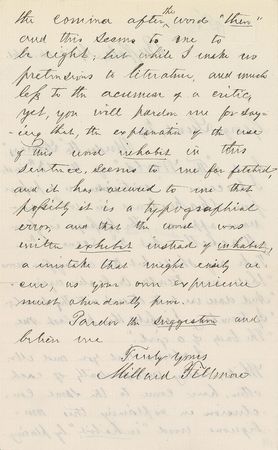 the comma after the word "then"
and this seems to me to
be right; but while I make no
pretensions to literature, and much
less to the acumen of a critic,
yet, you will pardon me for say-
ing that, the explanation of the use
of this word inhabit in this
sentence, seems to me far fetched
and it has occured to me that
possibly it is a typographical
error, and that the word was
written exhibit instead of inhabit,
a mistake that might easily oc-
cur, as your own experience
must abundantly prove.
Pardon the suggestion and
believe me
Truly yours
Millard Fillmore